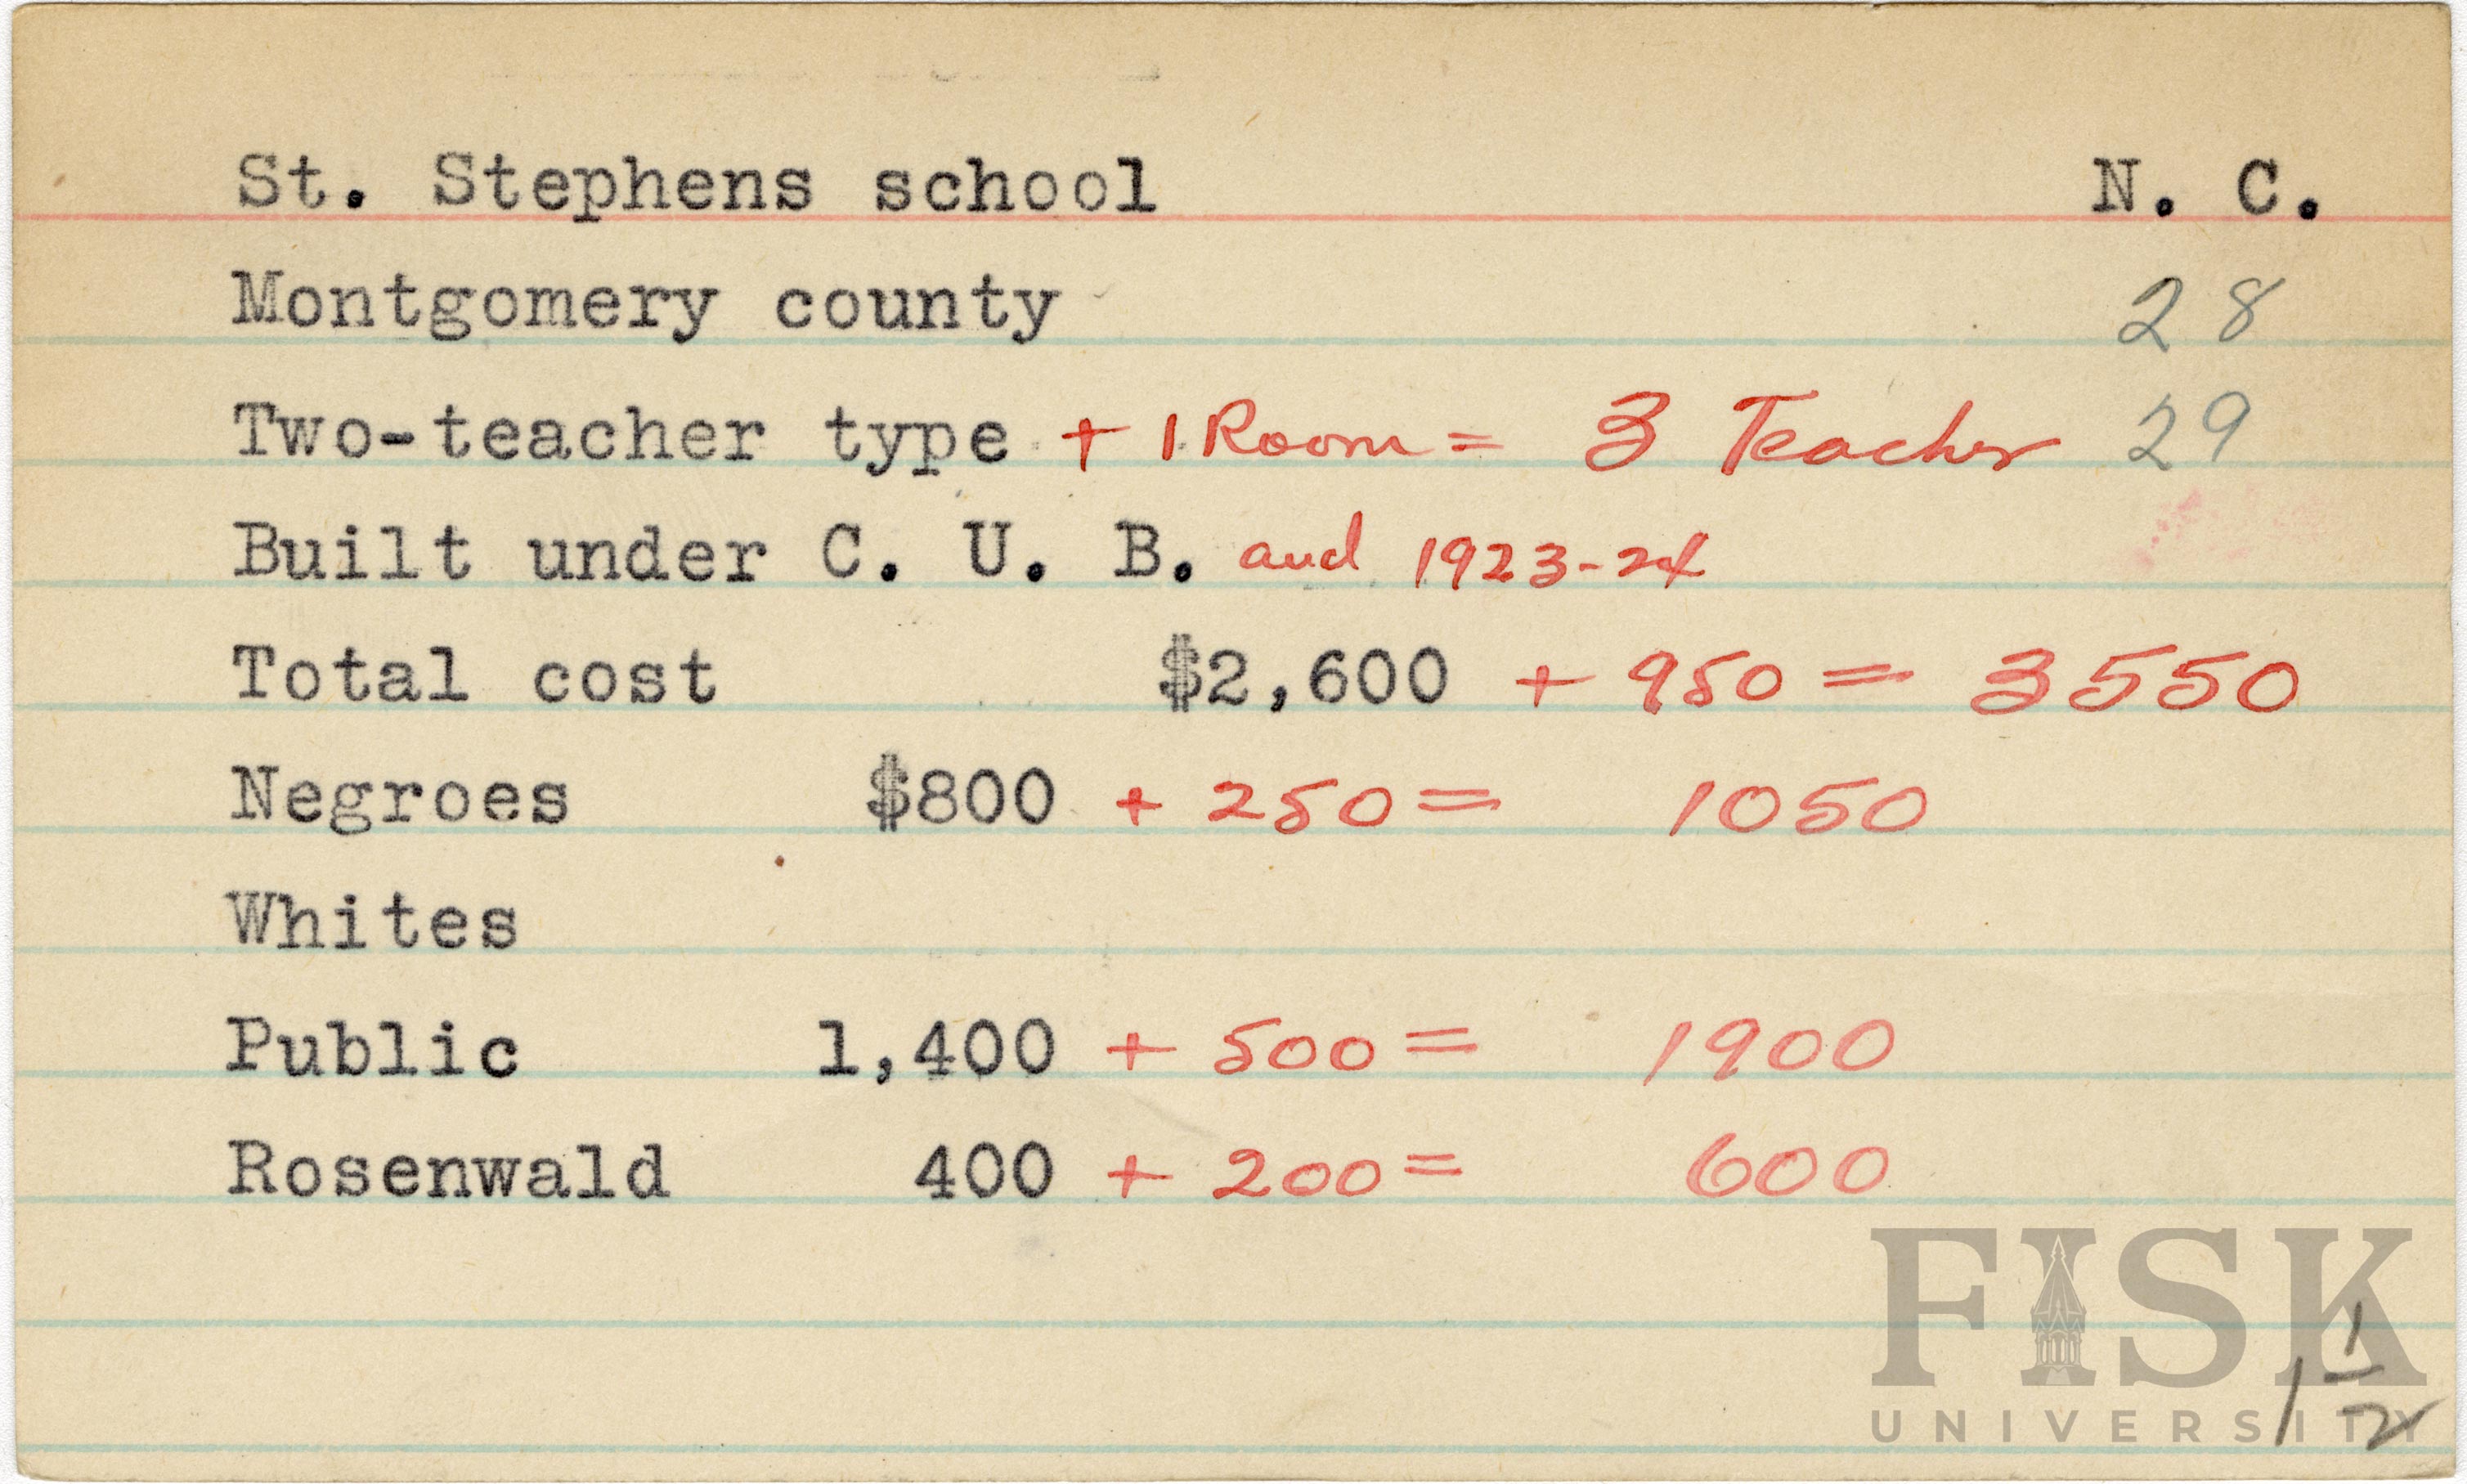 St. Stephens school N. C.
Montgomery county 28
Two-teacher type + 1 Room = 3 Teacher 29
Built under C. U. B. and 1923-24
Total cost $2,600 + 950 = 3550
Negroes $800 + 250 = 1050
Whites
Public 1,400 + 500 = 1900
Rosenwald 400 + 200 = 600
FISK
UNIVERSITY
1 1/2